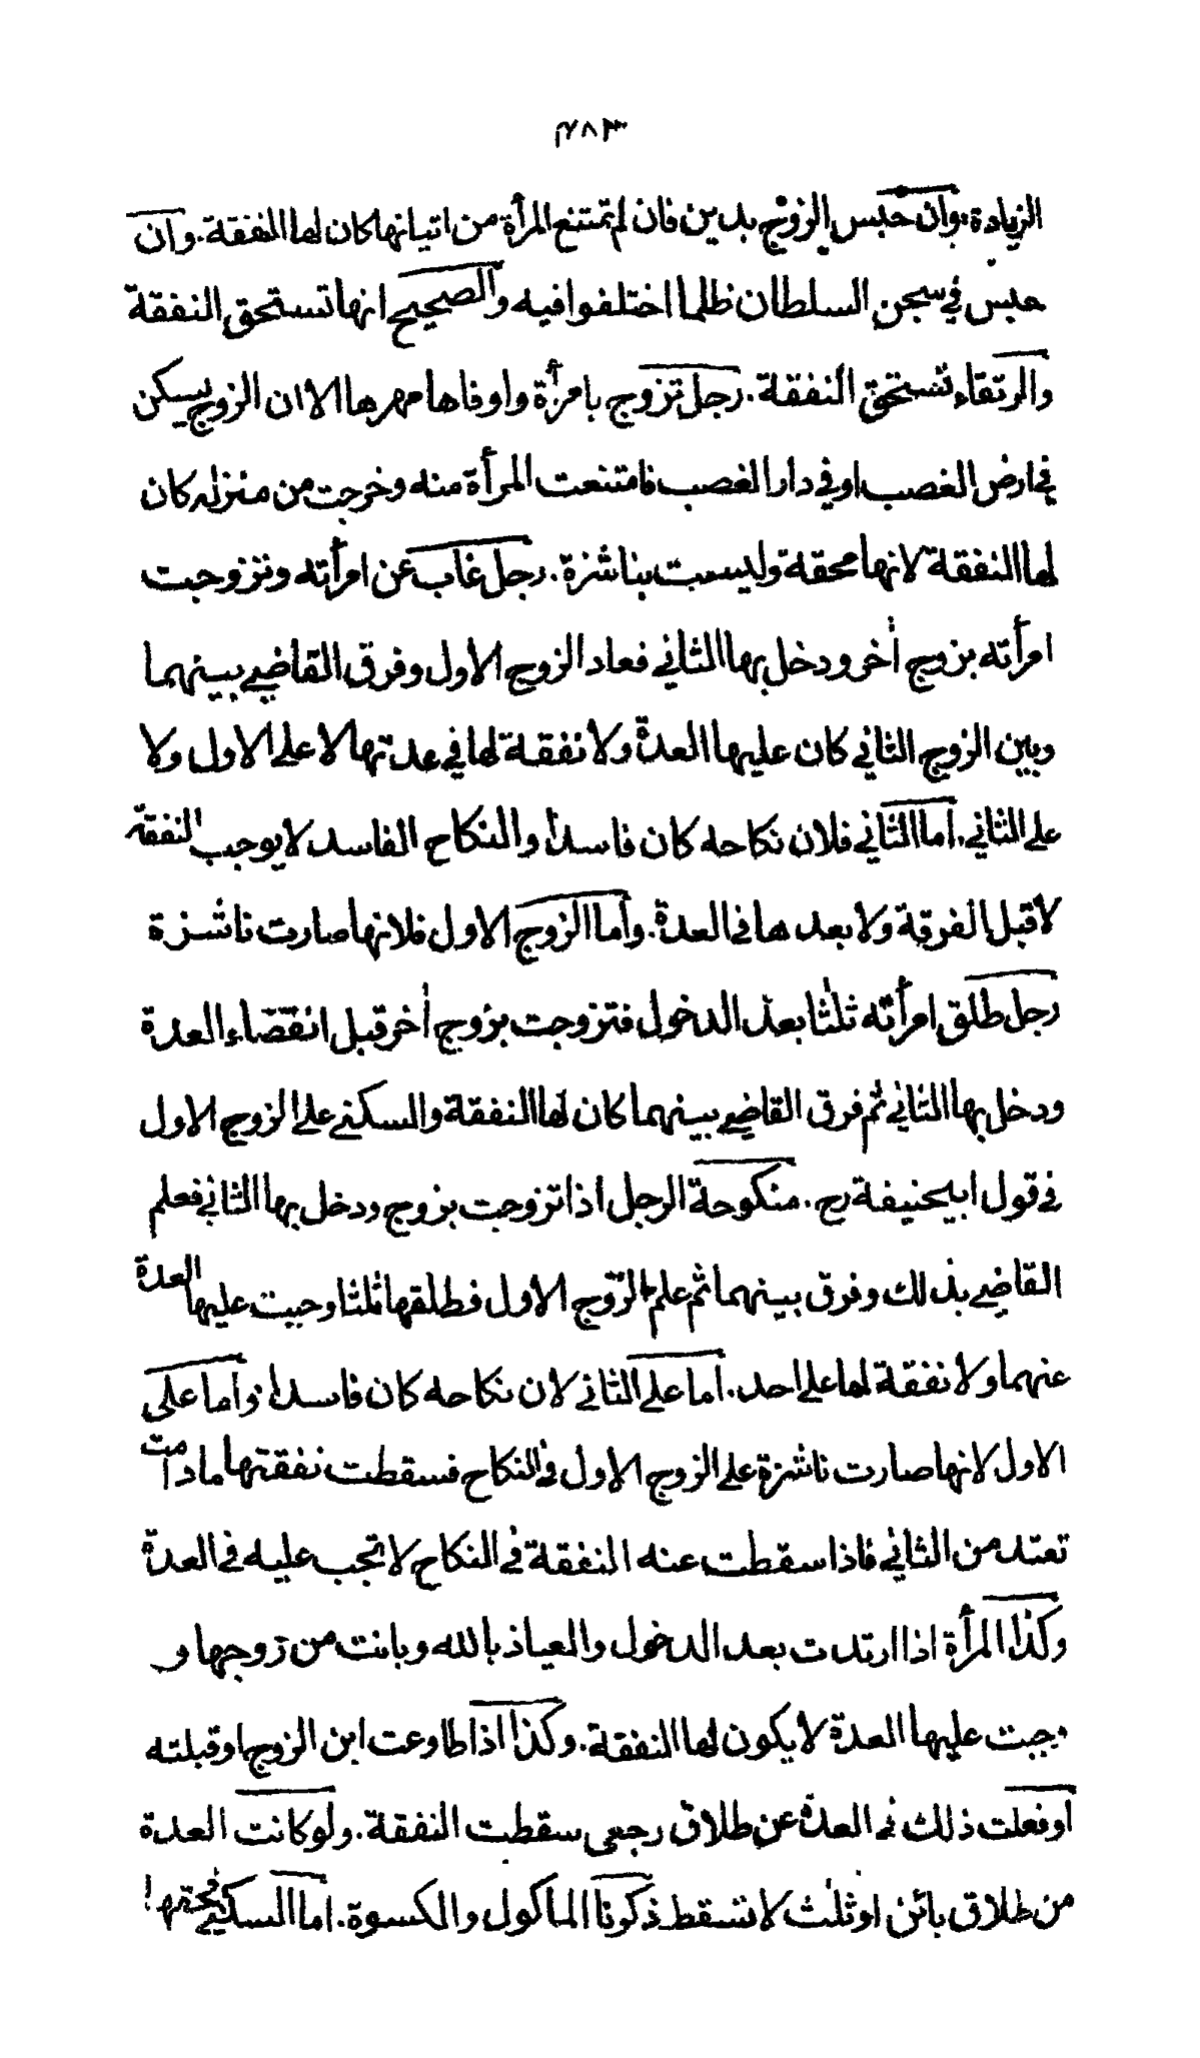 ٢٨٣
الزيادة. وان حبس الزوج بدين فان لم تمتنع المرأة من اتيانها كان لها النفقة. وان
حبس في سجن السلطان ظلما اختلفوا فيه والصحيح انها تستحق النفقة
والرتقاء تستحق النفقة. رجل تزوج بامرأة واوفاها مهرها الا ان الزوج يسكن
في ارض الغصب او في دار الغصب فامتنعت المرأة منه وخرجت من منزله كان
لها النفقة لانها محقة وليست بناشزة. رجل غاب عن امرأته وتزوجت
امرأته بزوج أخر ودخل بها الثاني فعاد الزوج الاول وفرق القاضي بينهما
وبين الزوج الثاني كان عليها العدة ولا نفقة لها في عدتها لا على الاول ولا
على الثاني. اما الثاني فلان نكاحه كان فاسدا والنكاح الفاسد لا يوجب النفقة
لا قبل الفرقة ولا بعدها في العدة. واما الزوج الاول فلانها صارت ناشزة
رجل طلق امرأته ثلثا بعد الدخول فتزوجت بزوج أخر قبل انقضاء العدة
ودخل بها الثاني ثم فرق القاضي بينهما كان لها النفقة والسكنى على الزوج الاول
في قول ابيحنيفة رح. منكوحة الرجل اذا تزوجت بزوج ودخل بها الثاني فعلم
القاضي بذلك وفرق بينهما ثم علم الزوج الاول فطلقها ثلثا وجبت عليها العدة
عنهما ولا نفقة لها على احد. اما على الثاني لان نكاحه كان فاسدا. واما على
الاول لانها صارت ناشزة على الزوج الاول في النكاح فسقطت نفقتها مادامت
تعتد من الثاني فاذا سقطت عنه النفقة في النكاح لا تجب عليه في العدة
وكذا المرأة اذا ارتدت بعد الدخول والعياذ بالله وبانت من زوجها و
وجبت عليها العدة لا يكون لها النفقة. وكذا اذا طاوعت ابن الزوج او قبلته
او فعلت ذلك في العدة عن طلاق رجعي سقطت النفقة. ولو كانت العدة
من طلاق بائن او ثلث لا تسقط ذكرنا الماكول والكسوة. اما السكنى فحقها